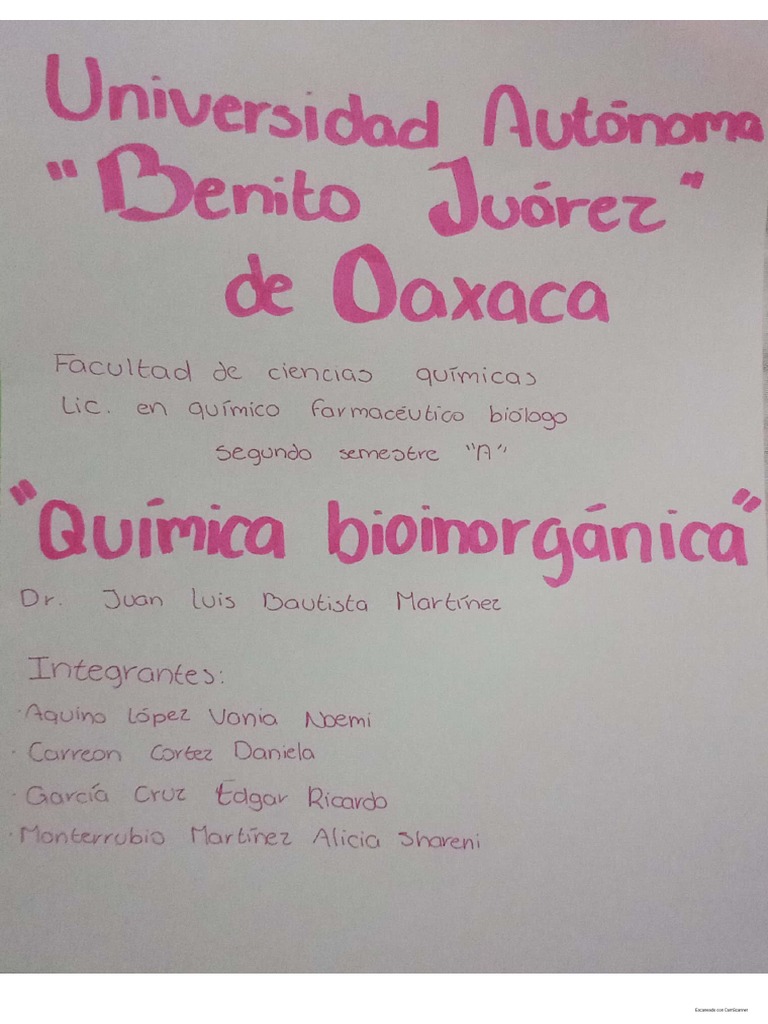 Universidad Autónoma
"Benito Juárez"
de Oaxaca
Facultad de ciencias químicas
Lic. en químico farmacéutico biólogo
Segundo semestre "A"
"Química bioinorgánica"
Dr. Juan Luis Bautista Martínez
Integrantes:
· Aquino López Vania Noemi
· Carreon Cortez Daniela
· García Cruz Edgar Ricardo
· Monterrubio Martínez Alicia Shareni
Escaneado con CamScanner